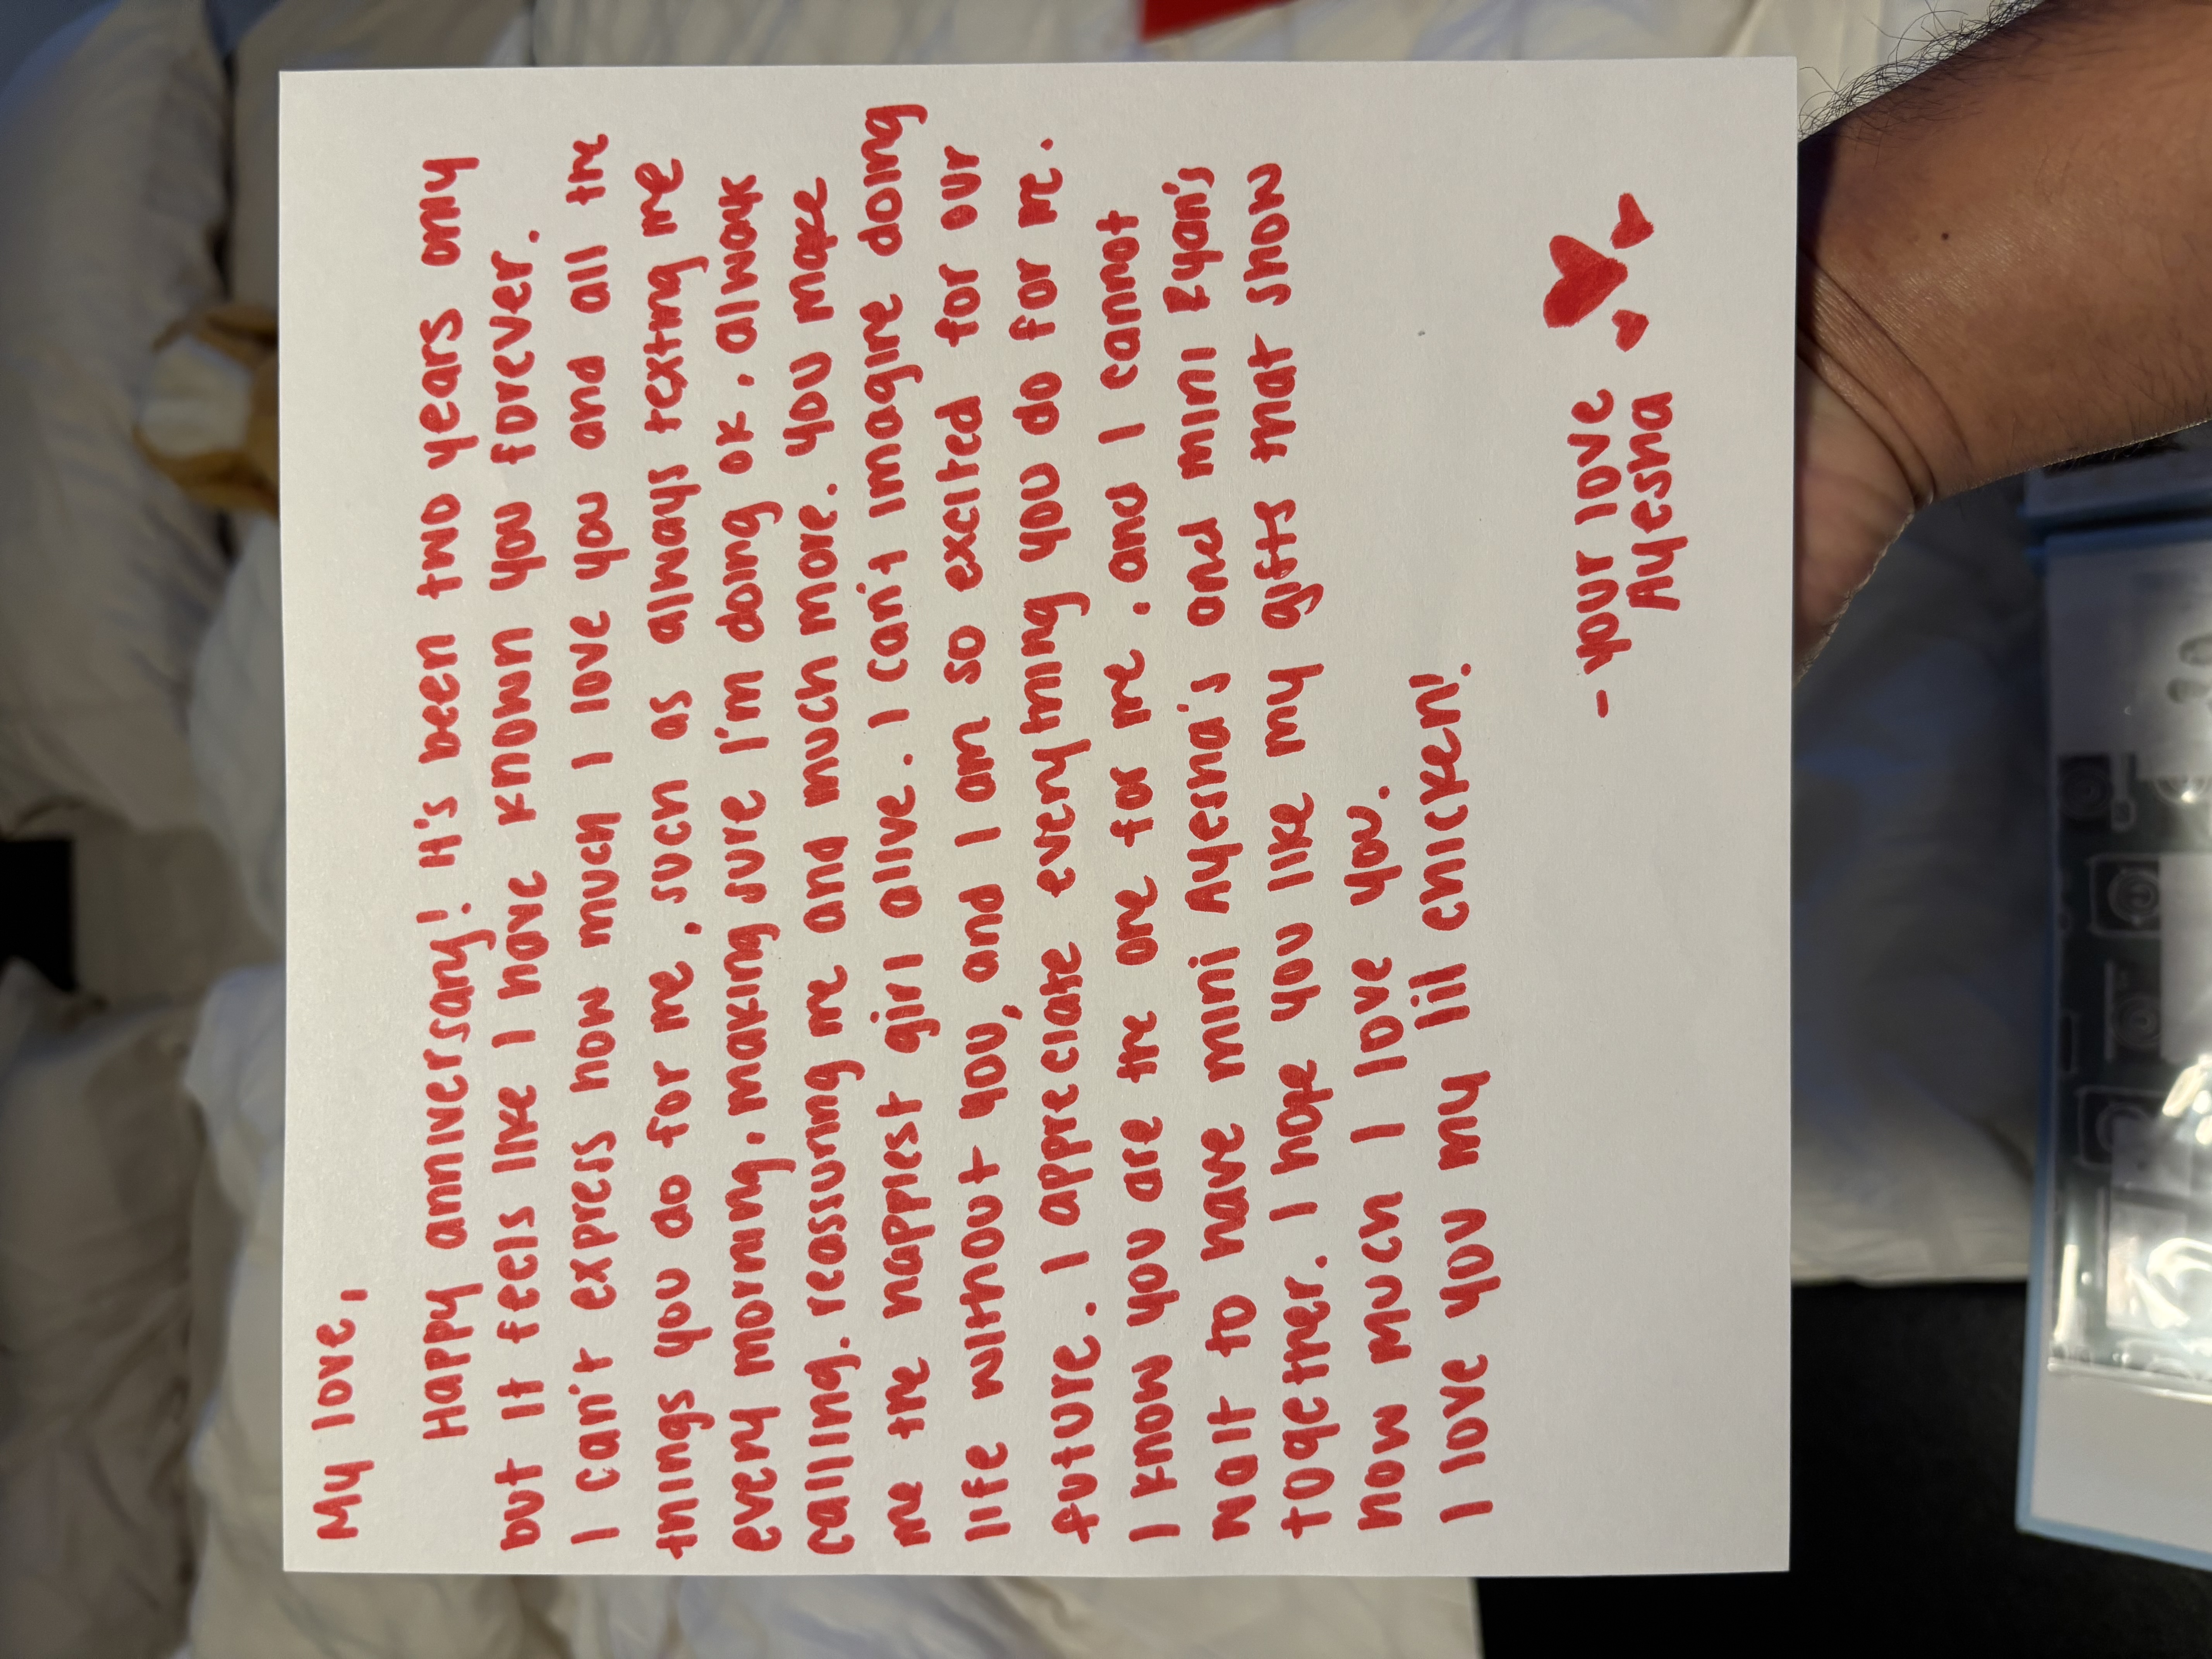 My love,
Happy anniversary! It's been two years only
but it feels like I have known you forever.
I can't express how much I love you and all the
things you do for me, such as always texting me
every morning, making sure I'm doing ok, always
calling, reassuring me and much more. You make
me the happiest girl alive. I can't imagine doing
life without you, and I am so excited for our
future. I appreciate everything you do for me.
I know you are the one for me, and I cannot
wait to have mini Ayesha's and mini Ryan's
together. I hope you like my gifts that show
how much I love you.
I love you my lil chicken!
- your love
Ayesha